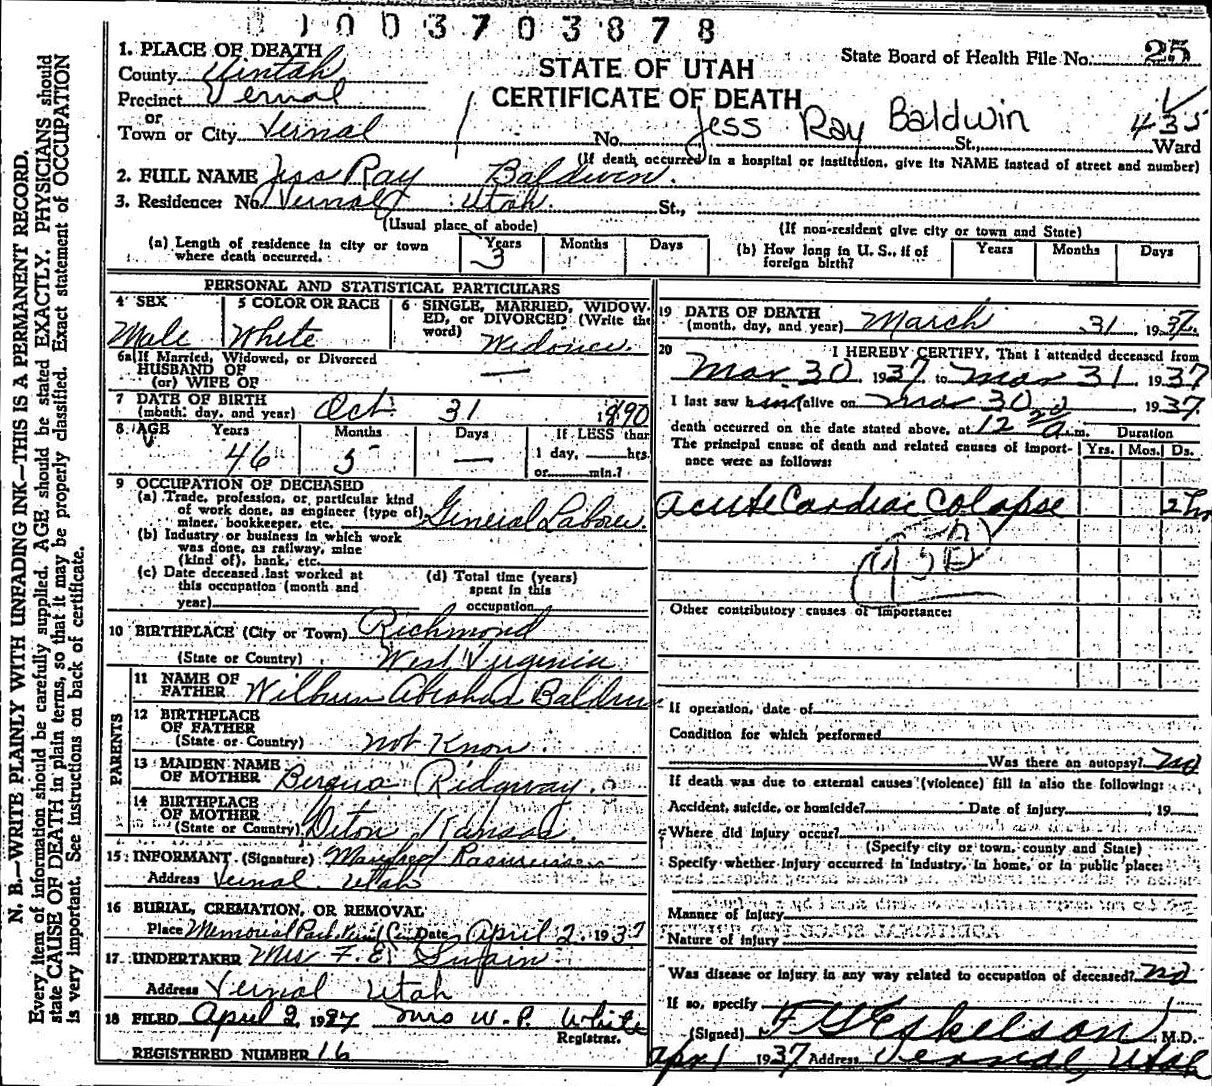 1 0 0 3 7 0 3 8 7 8
1. PLACE OF DEATH
County Uintah
Precinct Vernal
or
Town or City Vernal
STATE OF UTAH
CERTIFICATE OF DEATH
State Board of Health File No. 25
No. Jess Ray Baldwin St., Ward
435
(If death occurred in a hospital or institution, give its NAME instead of street and number)
2. FULL NAME Jess Ray Baldwin.
3. Residence: No. Vernal Utah. St.,
(Usual place of abode)
(If non-resident give city or town and State)
(a) Length of residence in city or town where death occurred.
Years Months Days
3
(b) How long in U. S., if of foreign birth?
Years Months Days
PERSONAL AND STATISTICAL PARTICULARS
4 SEX
Male
5 COLOR OR RACE
White
6 SINGLE, MARRIED, WIDOW-
ED, or DIVORCED (Write the
word)
6a If Married, Widowed, or Divorced
HUSBAND OF
(or) WIFE OF —
7 DATE OF BIRTH
(month, day, and year) Oct. 31 1890
8 AGE Years Months Days If LESS than
46 5 — 1 day, hrs.
or min.?
9 OCCUPATION OF DECEASED
(a) Trade, profession, or particular kind
of work done, as engineer (type of)
miner, bookkeeper, etc. General Laborer.
(b) Industry or business in which work
was done, as railway, mine
(kind of), bank, etc.
(c) Date deceased last worked at
this occupation (month and
year)
(d) Total time (years)
spent in this
occupation
10 BIRTHPLACE (City or Town) Richmond
(State or Country) West Virginia
PARENTS
11 NAME OF
FATHER Baldwin
12 BIRTHPLACE
OF FATHER
(State or Country) not Know.
13 MAIDEN NAME
OF MOTHER Ridgway.
14 BIRTHPLACE
OF MOTHER
(State or Country) Kansas.
15 INFORMANT (Signature)
Address Vernal Utah
16 BURIAL, CREMATION, OR REMOVAL
Place Memorial Park Date April 2, 1937
17 UNDERTAKER Mrs F. E.
Address Vernal Utah
18 FILED April 2, 1937 Mrs W. P. White
Registrar.
REGISTERED NUMBER 16
19 DATE OF DEATH
(month, day, and year) March 31, 1937.
20 I HEREBY CERTIFY, That I attended deceased from
Mar 30 1937 to Mar 31 1937
I last saw him alive on Mar 30, 1937.
death occurred on the date stated above, at 12 a.m. Duration
The principal cause of death and related causes of import-
ance were as follows:
Yrs. Mos. Ds.
Acute Cardiac Colapse 2 hr
Other contributory causes of importance:
If operation, date of
Condition for which performed
Was there an autopsy? no
If death was due to external causes (violence) fill in also the following:
Accident, suicide, or homicide? Date of injury 19
Where did injury occur?
(Specify city or town, county and State)
Specify whether injury occurred in industry, in home, or in public place:
Manner of Injury
Nature of Injury
Was disease or injury in any way related to occupation of deceased? no
If so, specify
(Signed) M.D.
Apr 1 1937 Address Vernal, Utah
N. B.—WRITE PLAINLY WITH UNFADING INK—THIS IS A PERMANENT RECORD.
Every item of information should be carefully supplied. AGE should be stated EXACTLY. PHYSICIANS should
state CAUSE OF DEATH in plain terms, so that it may be properly classified. Exact statement of OCCUPATION
is very important. See instructions on back of certificate.